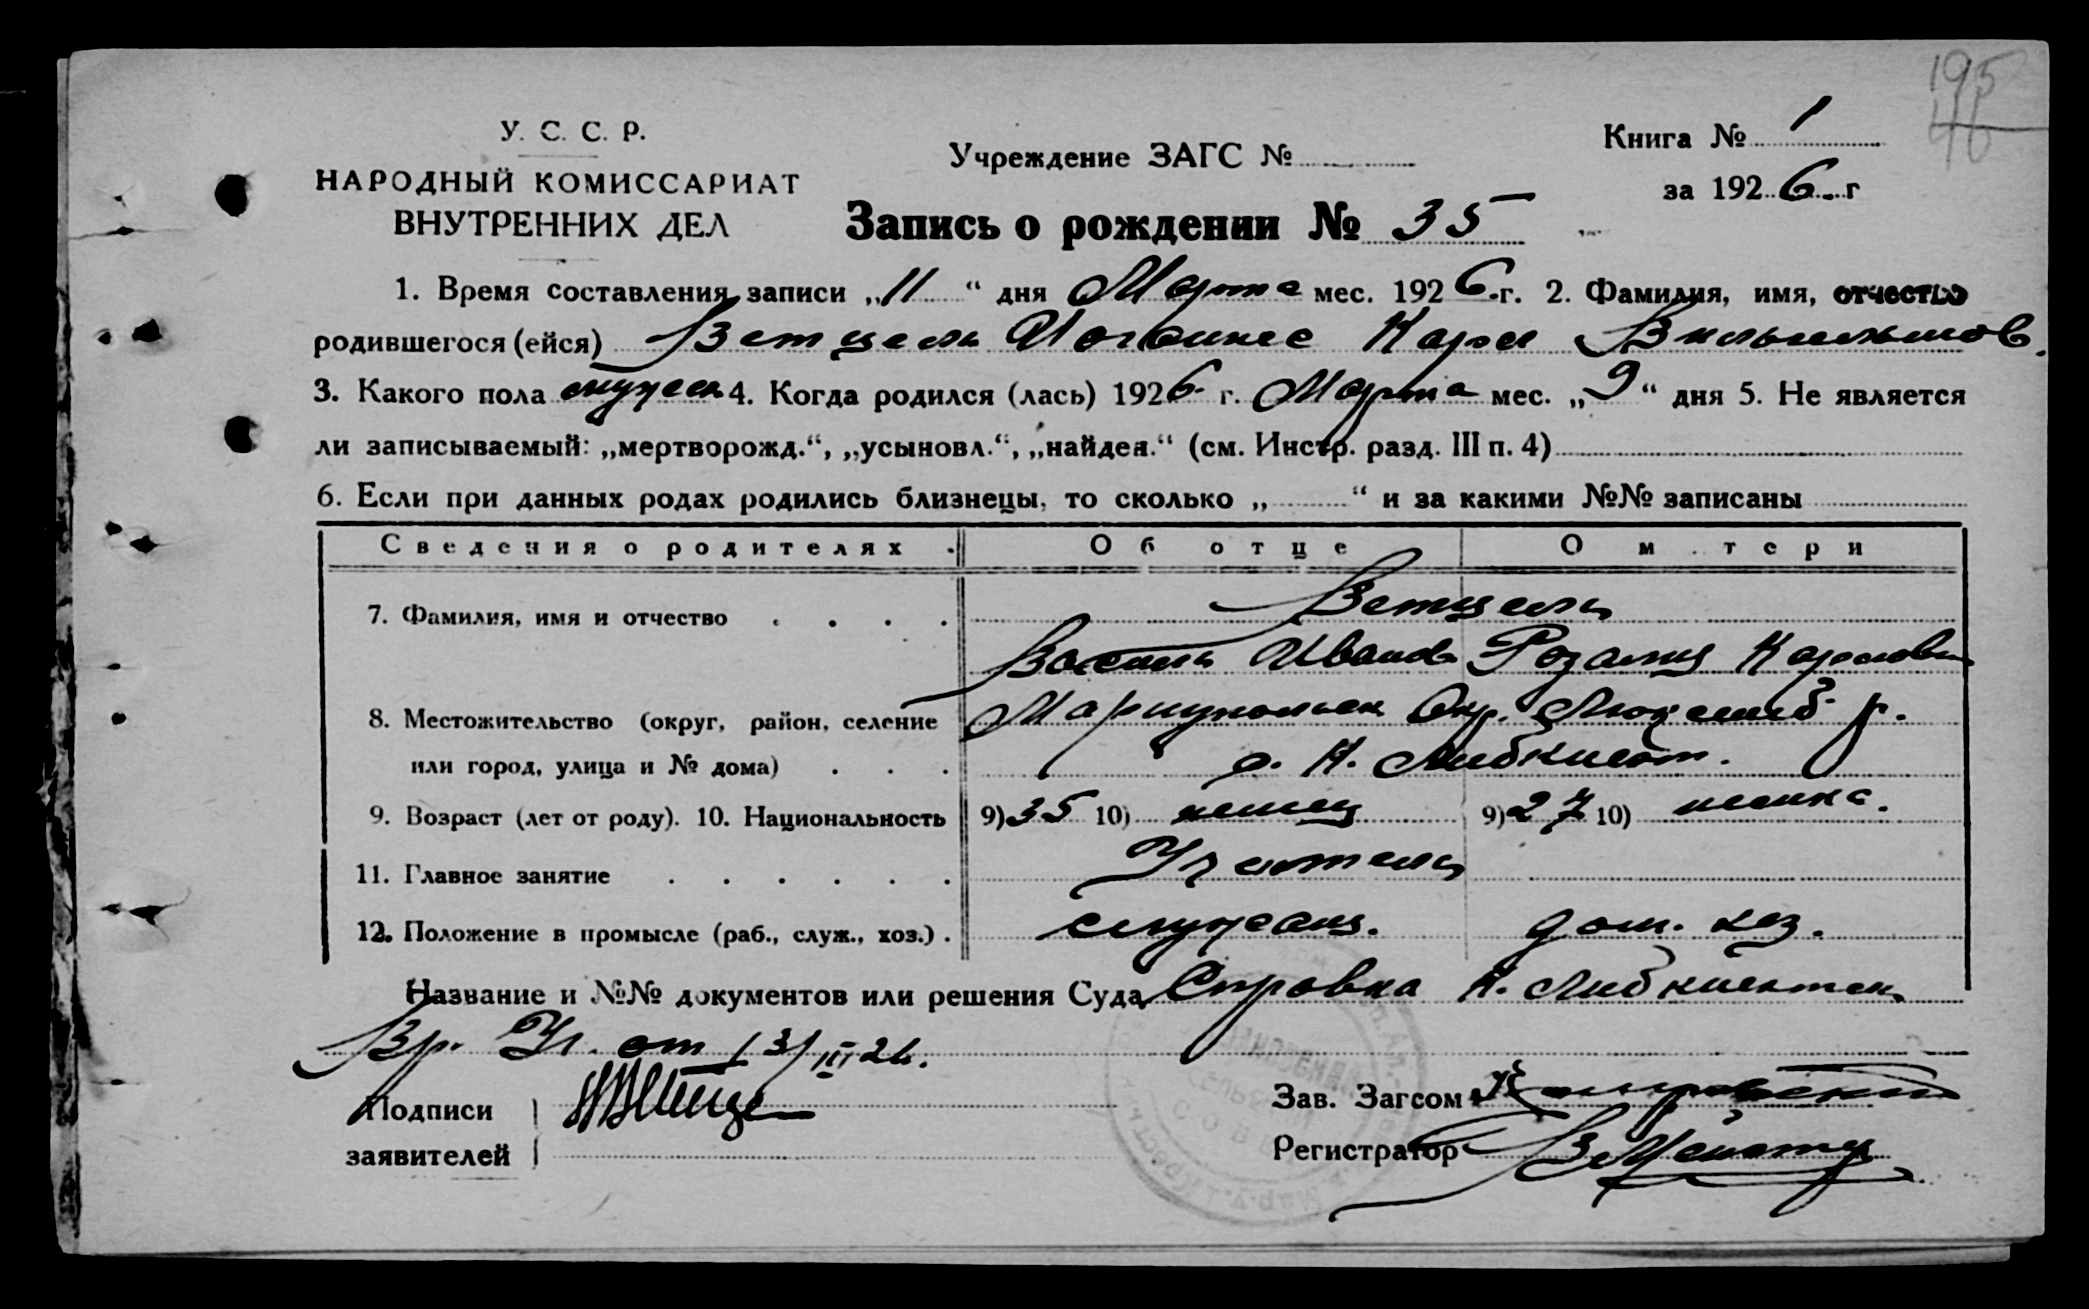 195
46
У. С. С. Р.
НАРОДНЫЙ КОМИССАРИАТ
ВНУТРЕННИХ ДЕЛ
Учреждение ЗАГС №
Книга № 1
за 1926 г
Запись о рождении № 35
1. Время составления записи „11“ дня Марта мес. 1926 г. 2. Фамилия, имя, отчество
родившегося (ейся) Ветцель Иоганнес Карл Вильгельмов.
3. Какого пола мужск 4. Когда родился (лась) 1926 г. Марта мес. „9“ дня 5. Не является
ли записываемый: „мертворожд.“, „усыновл.“, „найден.“ (см. Инстр. разд. III п. 4)
6. Если при данных родах родились близнецы, то сколько „ “ и за какими №№ записаны
Сведения о родителях Об отце О м тери
7. Фамилия, имя и отчество Ветцель
Иванов Розалия Карловн
8. Местожительство (округ, район, селение Мариупольск Окр. р.
или город, улица и № дома) Н.
9. Возраст (лет от роду). 10. Национальность 9) 35 10) немец 9) 27 10) немка.
11. Главное занятие Учитель
12. Положение в промысле (раб., служ., хоз.) служащ. дом. хоз.
Название и №№ документов или решения Суда Справка Н.
Вр. Уч. от III 26.
Подписи
заявителей
Зав. Загсом
Регистратор